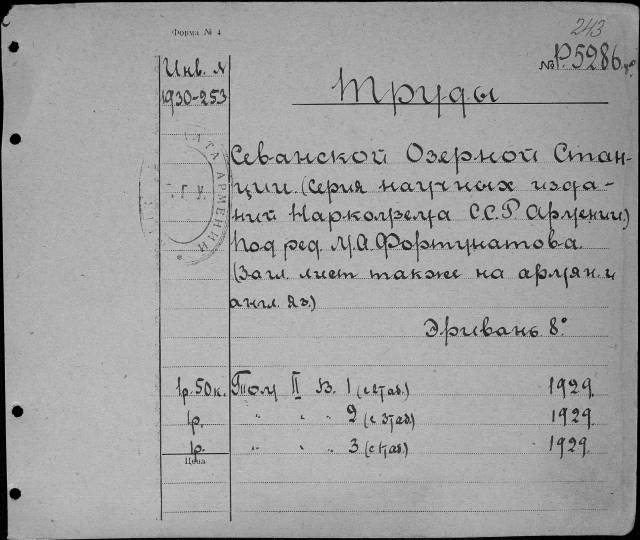 243
Форма № 4
№ Р.5286
Инв. №
1930-253
Труды
Севанской Озерной Стан-
ции. (Серия научных изда-
ний Наркомзема С.С.Р Армении)
Под ред М.А. Фортунатова.
(Загл. лист также на армян. и
англ. яз.)
Эривань 8°
1р.50к. Том II В. 1 (с 2 таб.) 1929.
1р. " " " 2 (с 3 таб.) 1929.
1р. " " " 3 (с 1 таб.) 1929.
Цена
АТА АРМЕНИИ
Г. У.